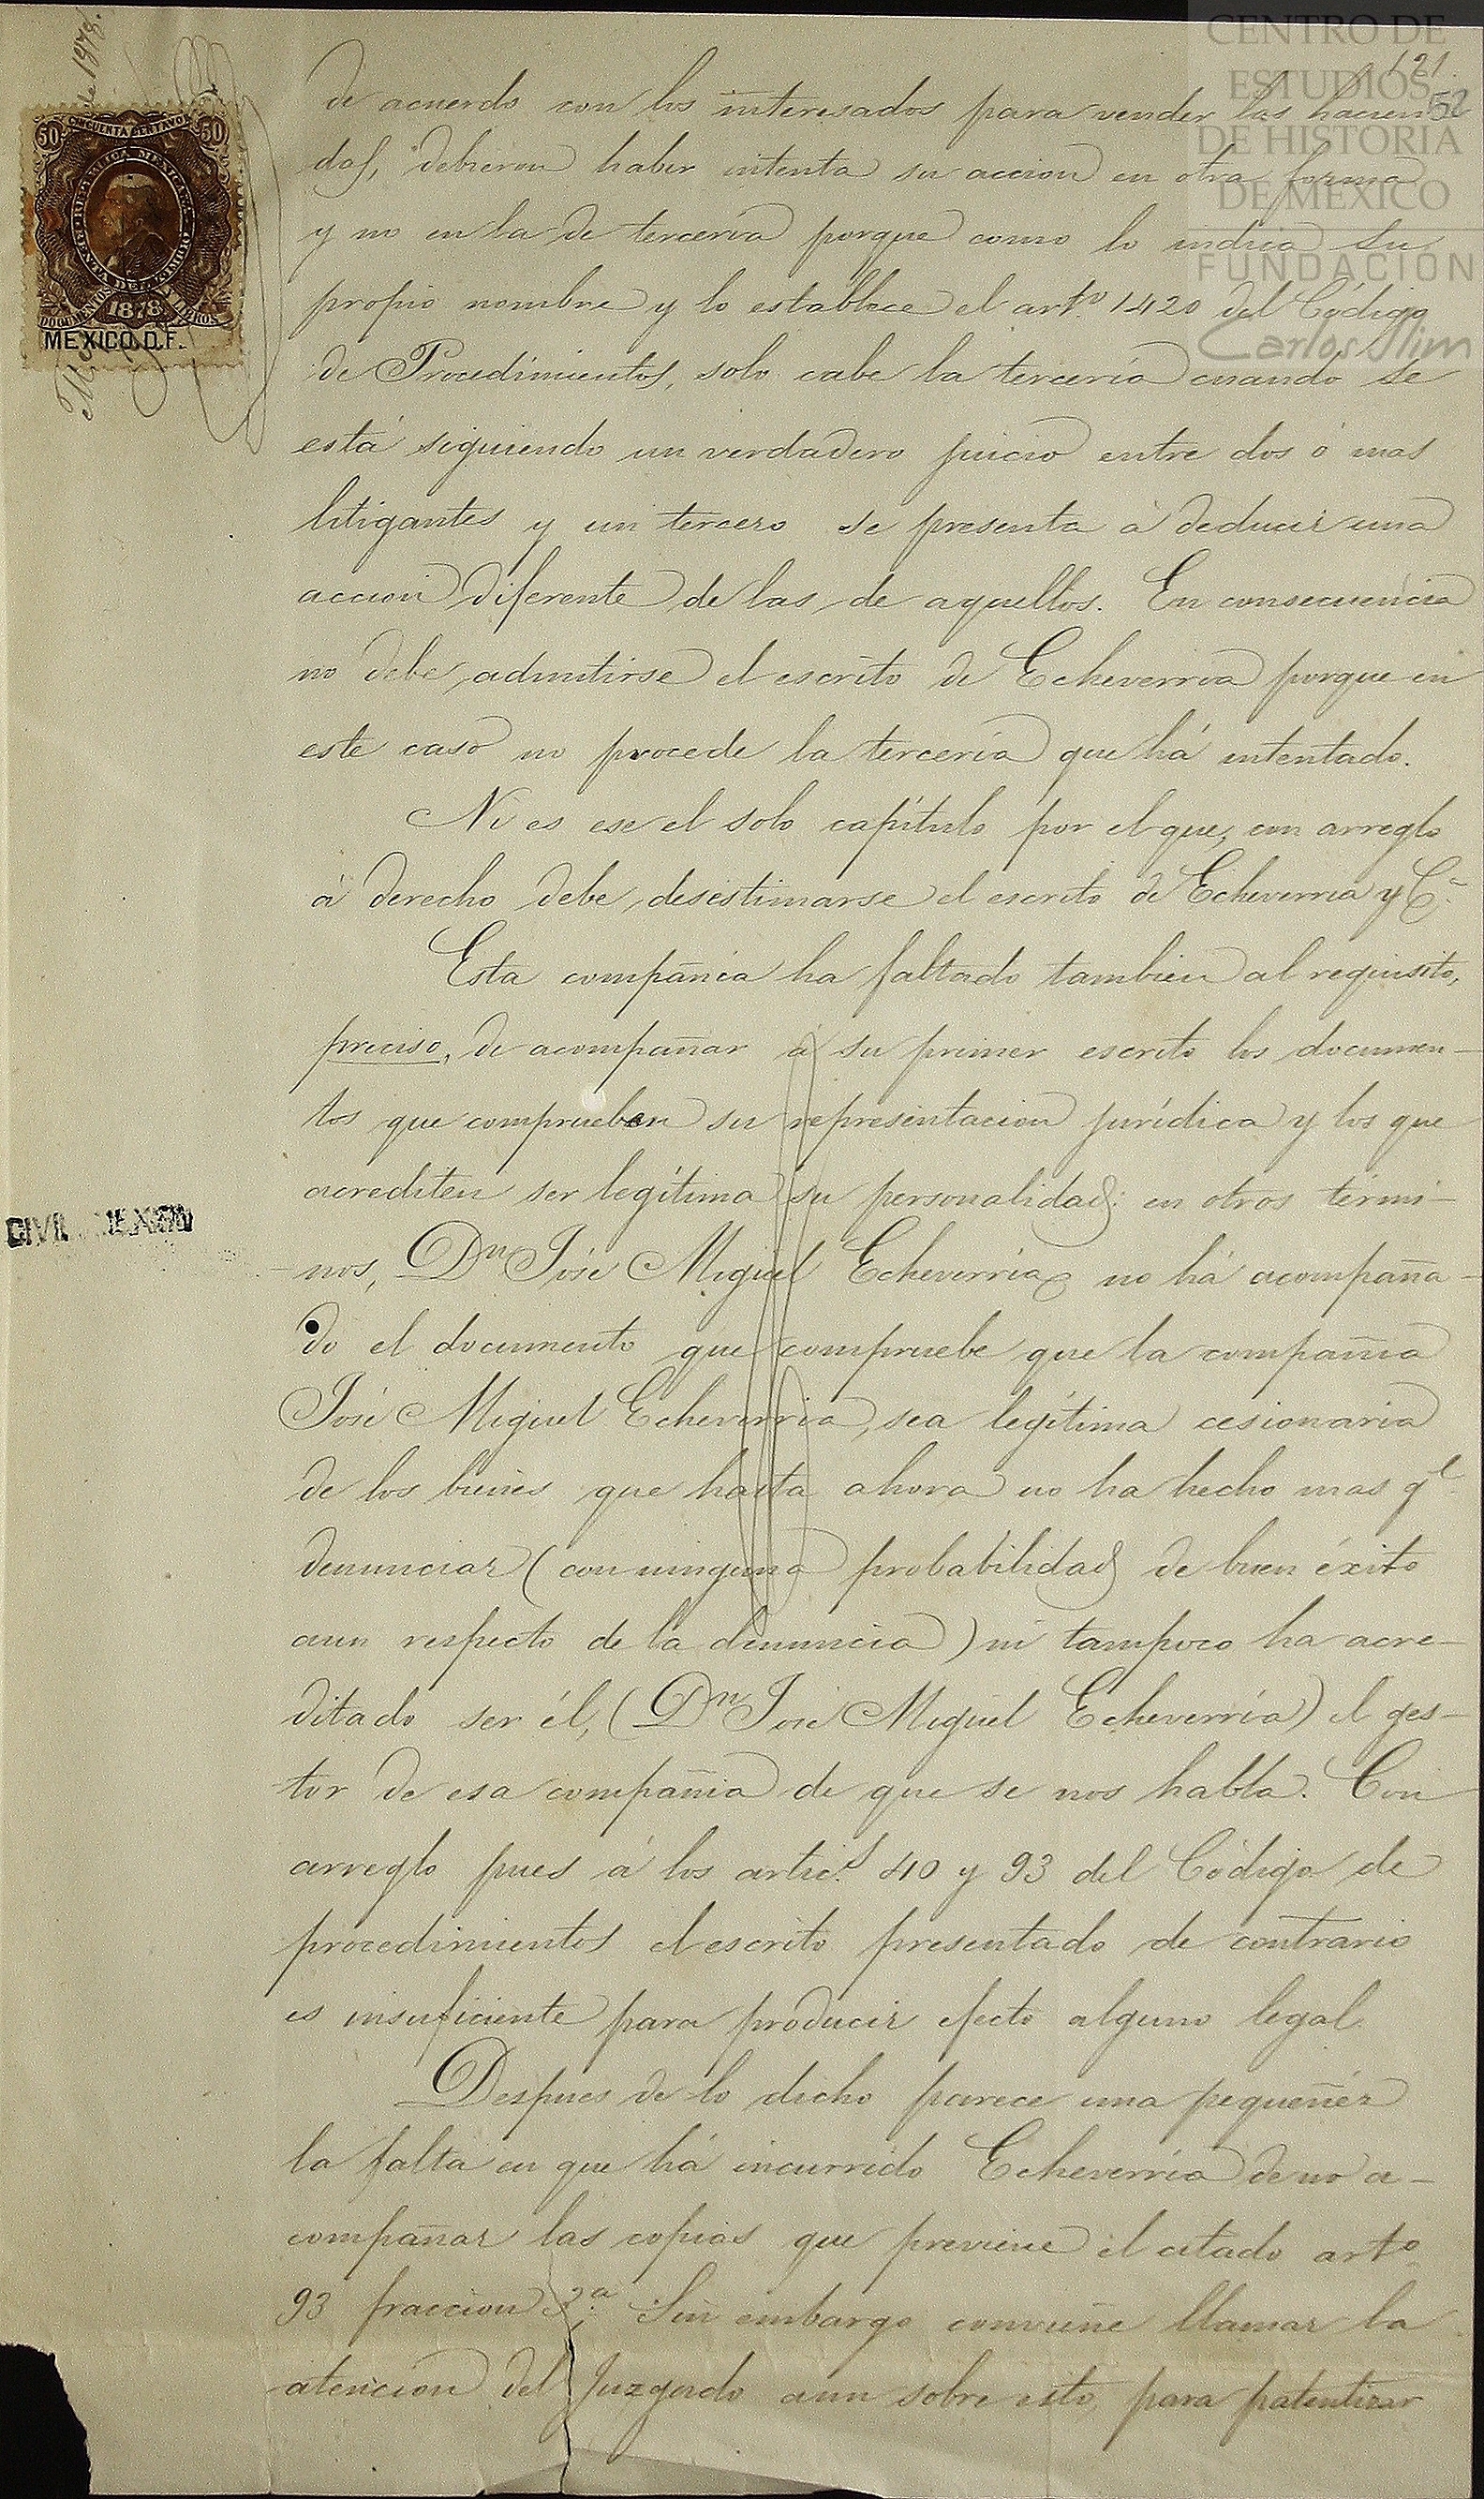 CENTRO DE
ESTUDIOS
DE HISTORIA
DE MÉXICO
FUNDACIÓN
Carlos Slim
121
52
de 1878.
50 CINCUENTA CENTAVOS 50
REPUBLICA MEXICANA
RENTA DEL TIMBRE
DOCUMENTOS Y LIBROS
1878
MEXICO. D. F.
de acuerdo con los interesados para vender las hacien
das, debieron haber intenta su accion en otra forma
y no en la de tercería porque como lo indica su
propio nombre y lo establece el art.º 1420 del Código
de Procedimientos, solo cabe la tercería cuando se
está siguiendo un verdadero juicio entre dos ó mas
litigantes y un tercero se presenta á deducir una
accion diferente de las de aquellos. En consecuencia
no debe admitirse el escrito de Echeverria porque en
este caso no procede la tercería que há intentado.
Ni es ese el solo capítulo por el que, con arreglo
á derecho debe desestimarse el escrito de Echeverria y Cª
Esta compañia ha faltado tambien al requisito,
preciso, de acompañar á su primer escrito los documen-
tos que comprueben su representacion jurídica y los que
acrediten ser legítima su personalidad: en otros térmi-
nos, Dn José Miguel Echeverría no há acompaña-
do el documento que compruebe que la compañia
José Miguel Echeverria, sea legítima cesionaria
de los bienes que hasta ahora no ha hecho mas qe
denunciar (con ninguna probabilidad de buen éxito
aun respecto de la denuncia) ni tampoco ha acre-
ditado ser él, (Dn José Miguel Echeverría) el ges-
tor de esa compañia de que se nos habla. Con
arreglo pues á los artic.s 40 y 93 del Código de
procedimientos el escrito presentado de contrario
es insuficiente para producir efecto alguno legal.
Despues de lo dicho parece una pequeñéz
la falta en que há incurrido Echeverría de no a-
compañar las copias que previene el citado artº
93 fraccion 3.ª Sin embargo conviene llamar la
atencion del Juzgado aun sobre esto, para patentizar
CIVIL MEXICO